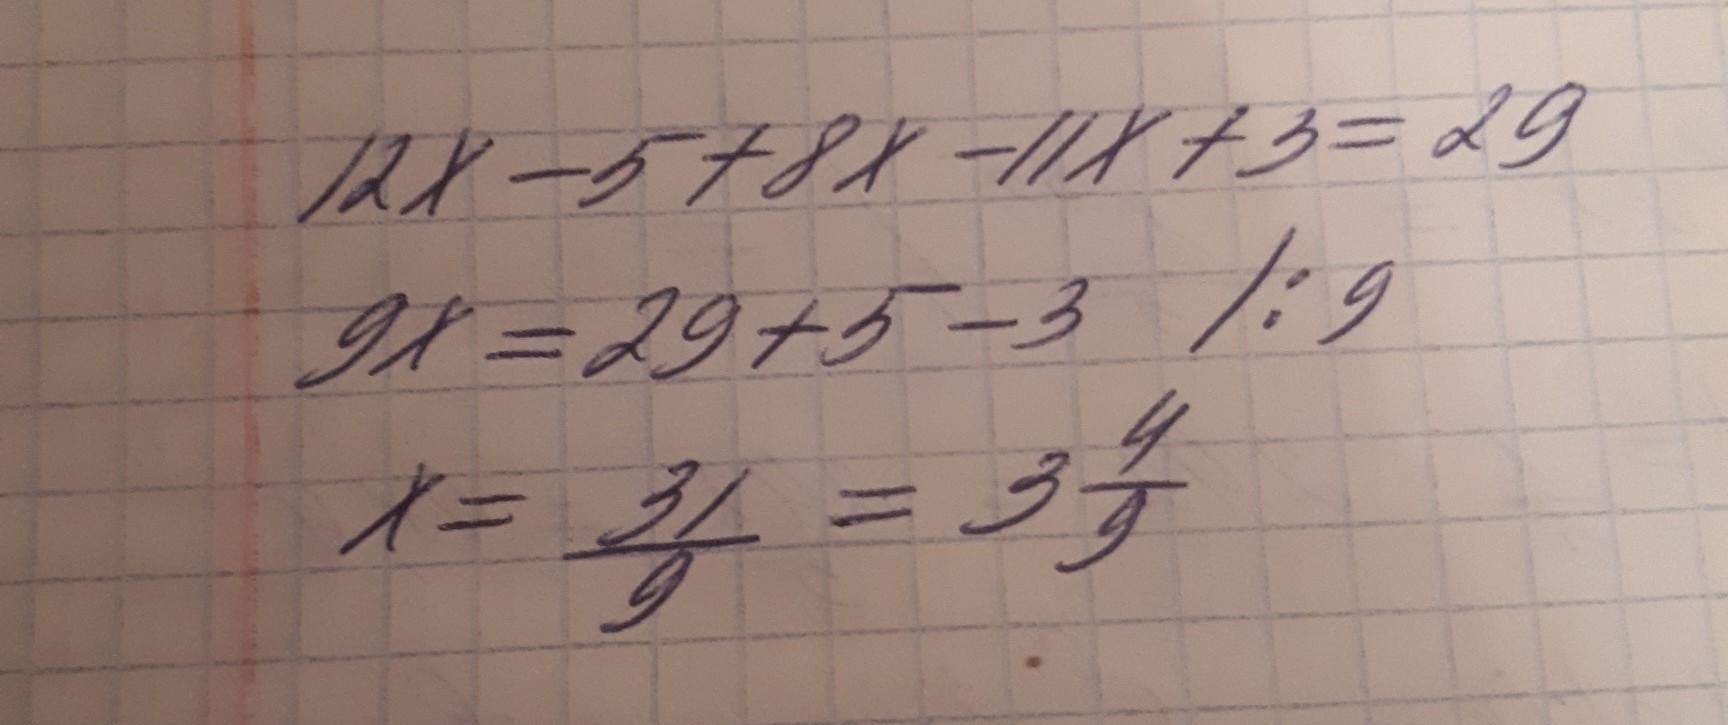 12x - 5 + 8x - 11x + 3 = 29
9x = 29 + 5 - 3 /: 9
x = 31/9 = 3 4/9